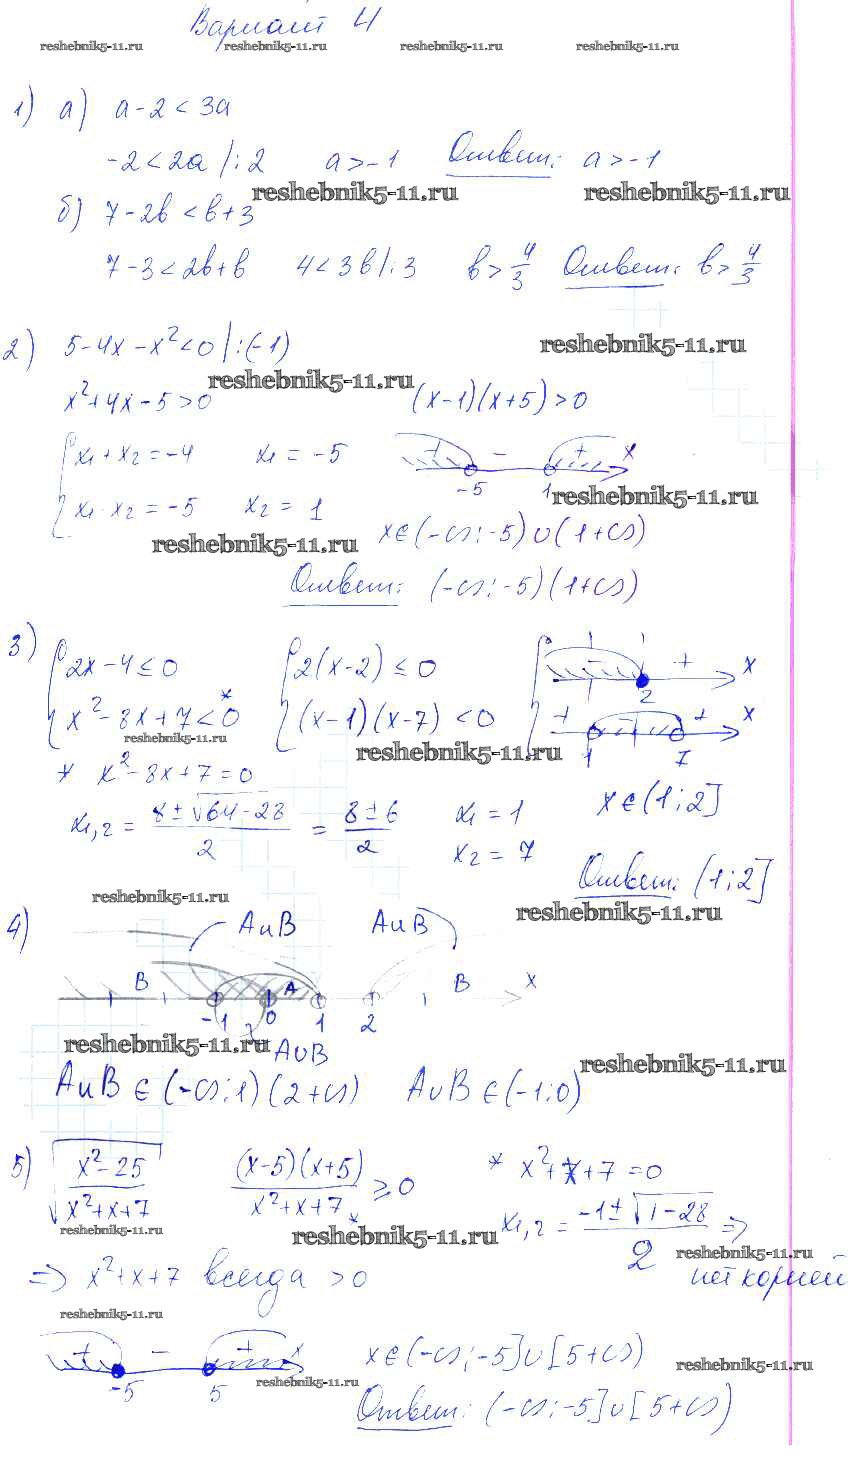 Вариант 4
reshebnik5-11.ru reshebnik5-11.ru reshebnik5-11.ru reshebnik5-11.ru
1) а) a-2<3a
-2<2a |:2 a>-1 Ответ: a>-1
reshebnik5-11.ru reshebnik5-11.ru
б) 7-2b<b+3
7-3<2b+b 4<3b|:3 b>4/3 Ответ: b>4/3
2) 5-4x-x²<0|:(-1) reshebnik5-11.ru
reshebnik5-11.ru
x²+4x-5>0 (x-1)(x+5)>0
x₁+x₂=-4 x₁=-5 + - + x
-5 1 reshebnik5-11.ru
x₁·x₂=-5 x₂=1
reshebnik5-11.ru x∈(-∞;-5)∪(1+∞)
Ответ: (-∞;-5)(1+∞)
3) 2x-4≤0 2(x-2)≤0 - + x
2
x²-8x+7<0 * (x-1)(x-7)<0 + - + x
reshebnik5-11.ru reshebnik5-11.ru 1 7
* x²-8x+7=0
x₁,₂=(8±√64-28)/2=(8±6)/2 x₁=1 x∈(1;2]
x₂=7
Ответ: (1;2]
reshebnik5-11.ru reshebnik5-11.ru
4) A∪B A∪B
B A B x
-1 0 1 2
reshebnik5-11.ru A∪B reshebnik5-11.ru
A∪B∈(-∞;1)(2+∞) A∪B∈(-1;0)
5) √(x²-25)/(x²+x+7) (x-5)(x+5)/(x²+x+7)* ≥0 * x²+x+7=0
reshebnik5-11.ru reshebnik5-11.ru x₁,₂=(-1±√1-28)/2 ⇒
reshebnik5-11.ru
⇒ x²+x+7 всегда >0 нет корней
reshebnik5-11.ru
+ - + x x∈(-∞;-5]∪[5+∞)
-5 5 reshebnik5-11.ru reshebnik5-11.ru
Ответ: (-∞;-5]∪[5+∞)